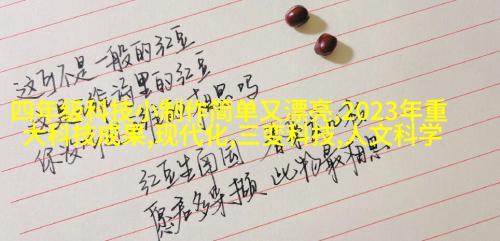 这可不是一般的红豆
这是
里的红豆
吗
四年级科技小制作简单又漂亮,2023年重
大科技成果,现代化,三变科技,人文科学
保
红豆生南国
愿君多采撷 此物最相思